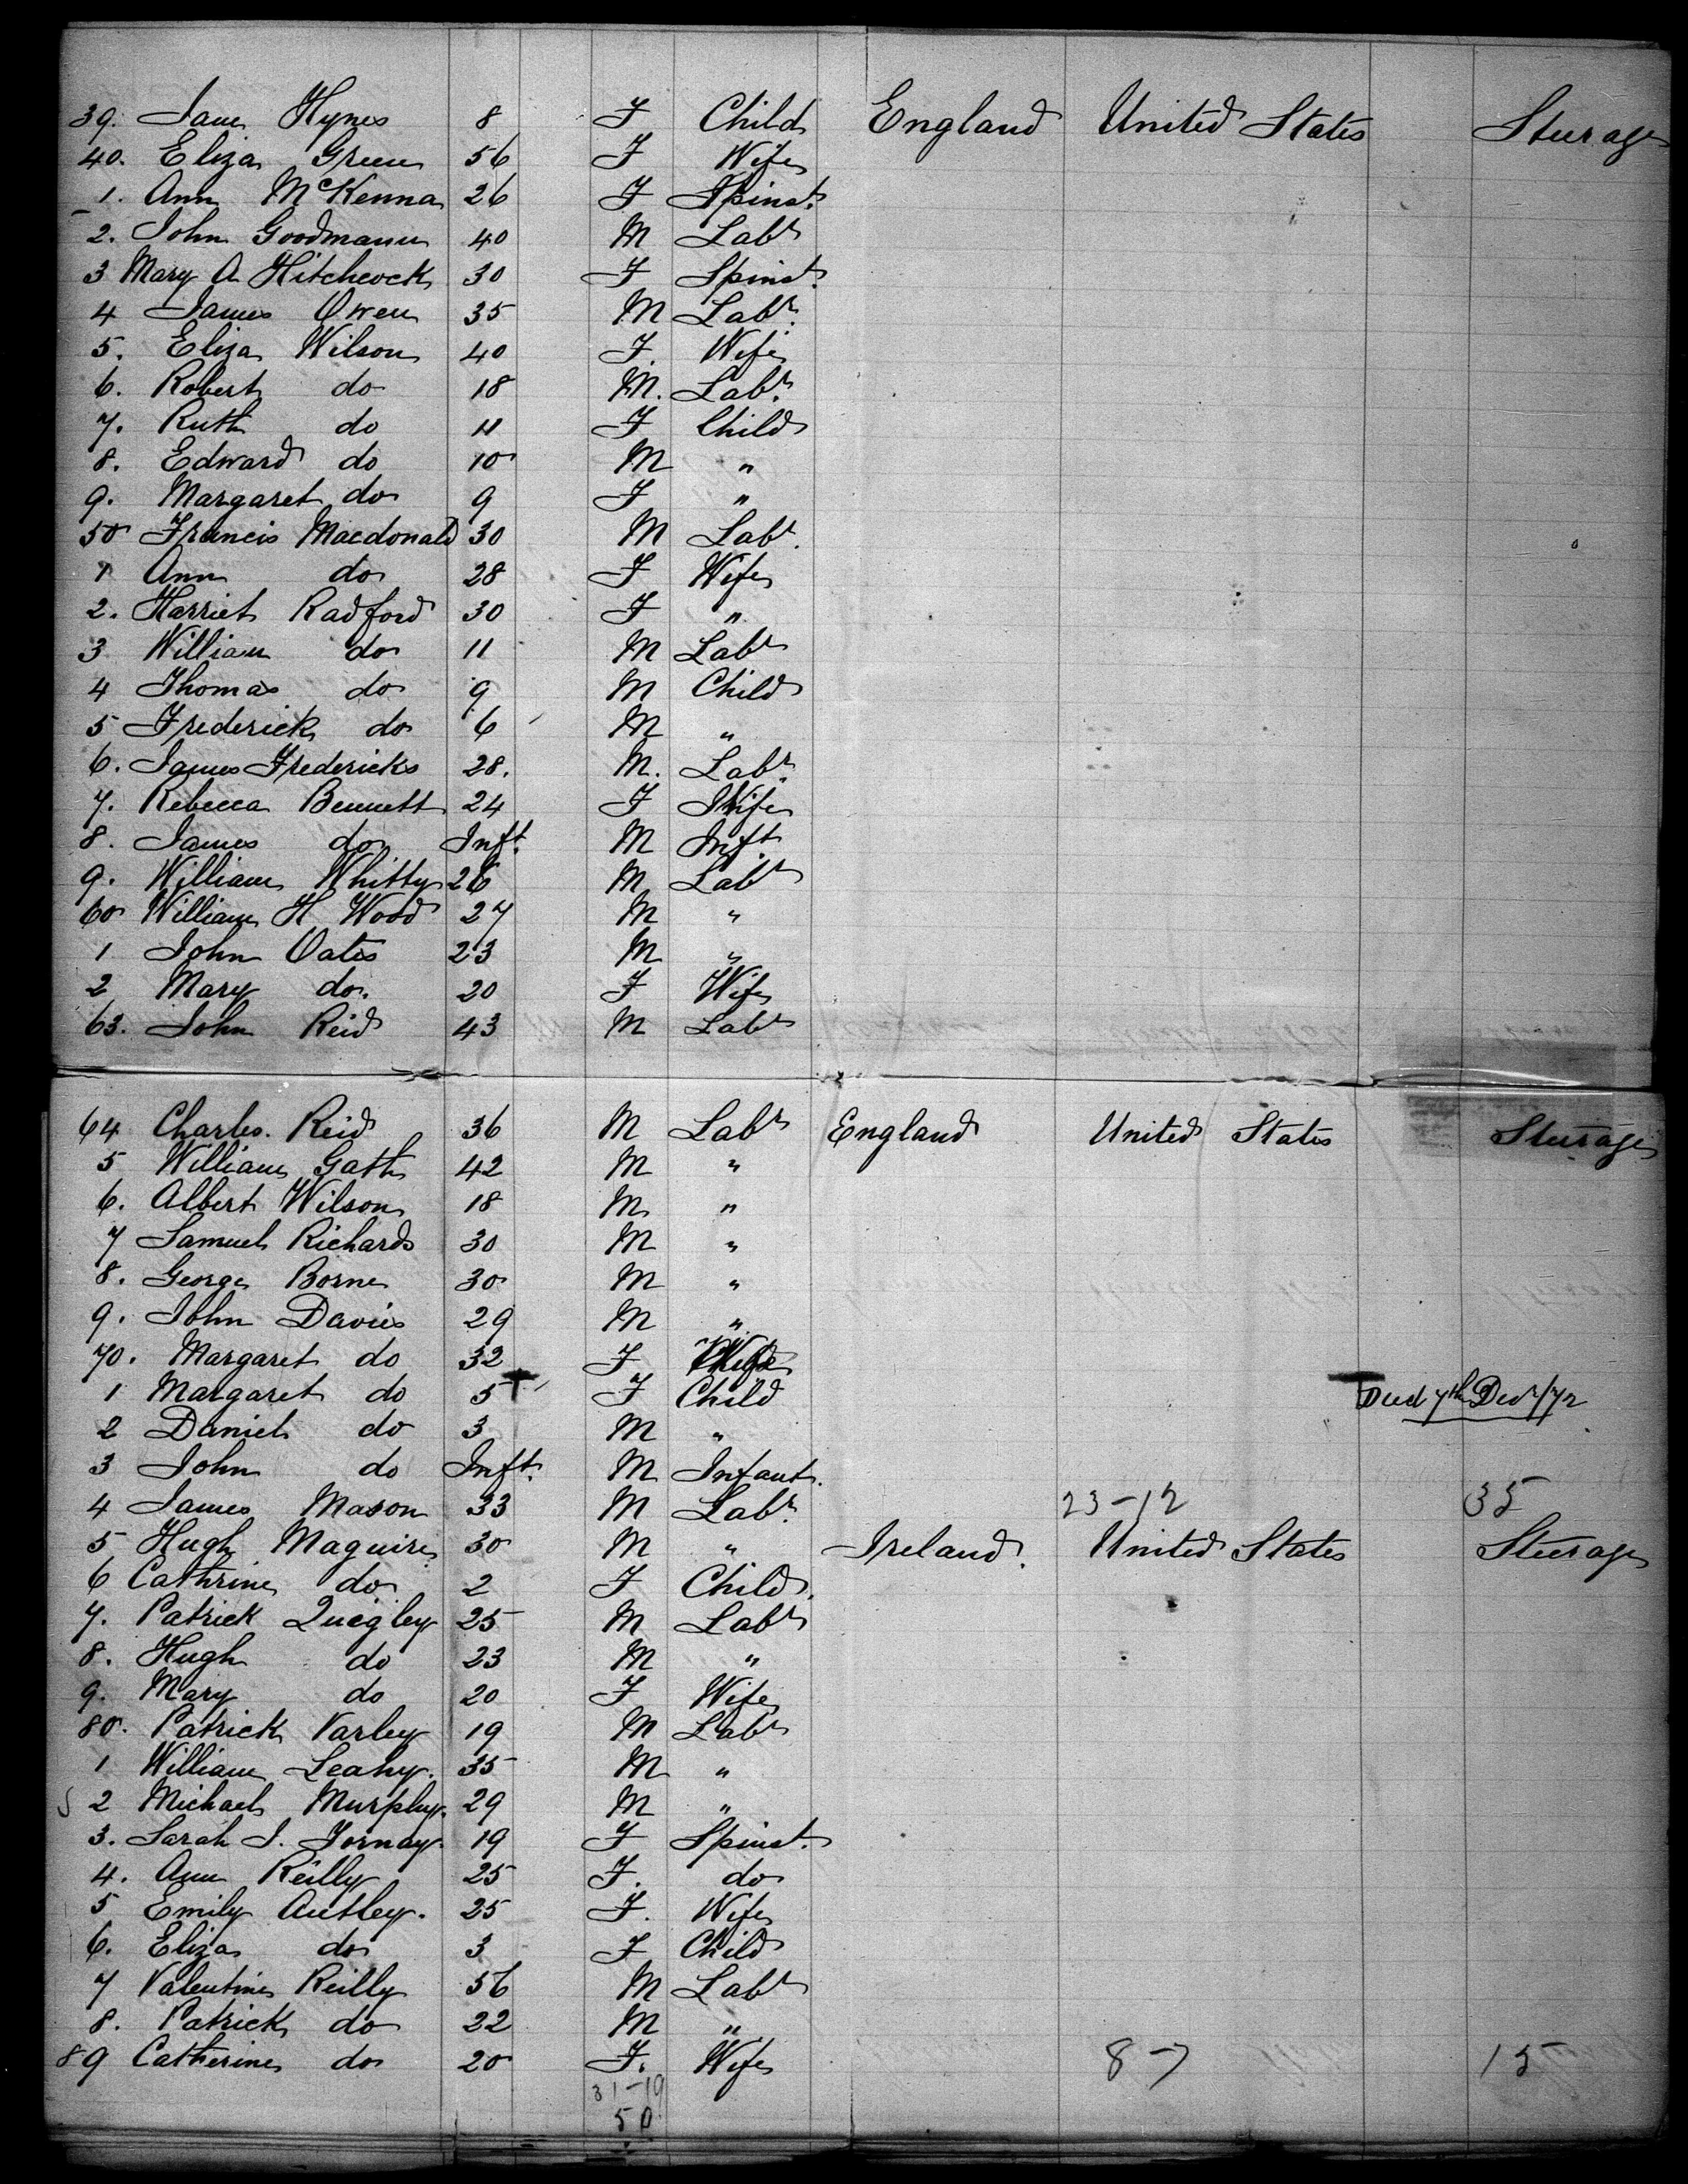 39. Jane Hynes 8 F Child England United States Steerage
40. Eliza Green 56 F Wife
1. Ann McKenna 26 F Spinst.
2. John Goodmann 40 M Labr
3 Mary A Hitchcock 30 F Spinst.
4 James Owen 35 M Labr.
5. Eliza Wilson 40 F. Wife
6. Robert do 18 M. Labr.
7. Ruth do 11 F Child
8. Edward do 10 M "
9. Margaret do 9 F "
50 Francis Macdonald 30 M Labr.
1 Ann do 28 F Wife
2. Harriet Radford 30 F "
3 William do 11 M Labr
4 Thomas do 9 M Child
5 Frederick do 6 M "
6. James Fredericks 28. M. Labr.
7. Rebecca Bennett 24 F Wife
8. James do Inft. M Inft.
9. William Whitty 26 M Labr
60 William H Wood 27 M "
1 John Oates 23 M "
2 Mary do. 20 F Wife
63. John Reid 43 M Labr
64 Charles. Reid 36 M Labr England United States Steerage
5 William Gath 42 M "
6. Albert Wilson 18 M "
7 Samuel Richards 30 M "
8. George Borne 30 M "
9. John Davies 29 M "
70. Margaret do 32 F Wife
1 Margaret do 5 F Child Died 7th Decr/72
2 Daniel do 3 M "
3 John do Inft. M Infant.
4 James Mason 33 M Labr. 23-12 35
5 Hugh Maguire 30 M " Ireland. United States Steerage
6 Cathrine do 2 F Child.
7. Patrick Quigley 25 M Labr
8. Hugh do 23 M "
9. Mary do 20 F Wife
80. Patrick Varley 19 M Labr
1 William Leahy. 35 M "
2 Michael Murphy. 29 M "
3. Sarah J. Tornay. 19 F Spinst.
4. Ann Reilly 25 F. do
5 Emily Autley. 25 F. Wife
6. Eliza do 3 F Child
7 Valentine Reilly 56 M Labr
8. Patrick do 22 M "
89 Catherine do 20 F. Wife 8-7 15
31-19
50